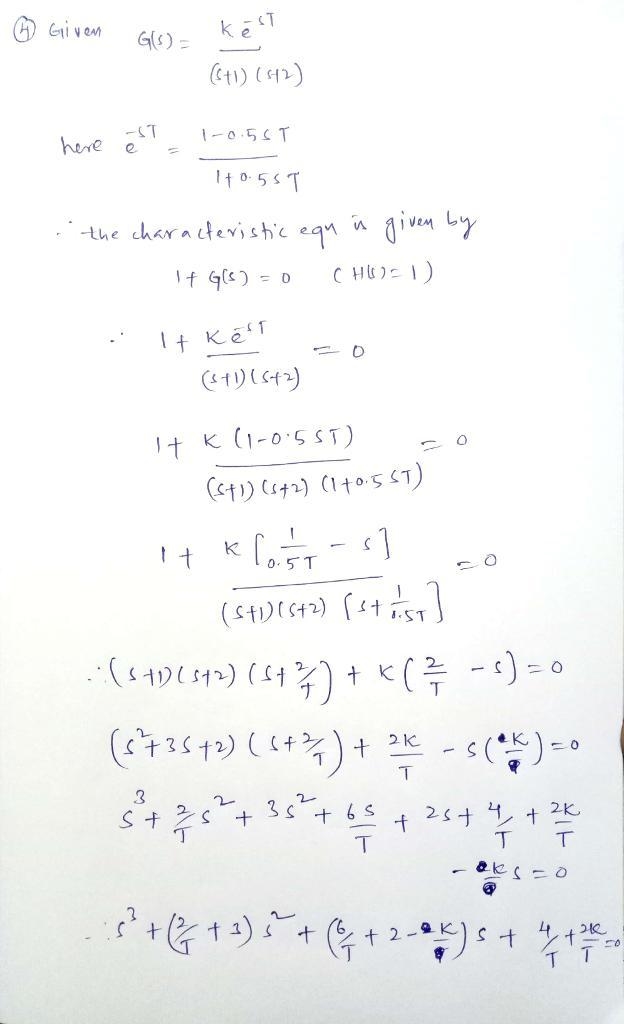 ④ Given G(s) = K e^-sT
(s+1) (s+2)
here e^-sT = 1-0.5sT
1+0.5sT
∴ the characteristic equn is given by
1+ G(s) = 0 ( H(s) = 1 )
∴ 1+ K e^-sT = 0
(s+1)(s+2)
1+ K (1-0.5sT) = 0
(s+1) (s+2) (1+0.5sT)
1+ K [1/0.5T - s] = 0
(s+1)(s+2) [s+ 1/0.5T]
∴ (s+1)(s+2) (s+2/T) + K(2/T - s) = 0
(s²+3s+2) (s+2/T) + 2K/T - s(K) = 0
s³ + 2/T s² + 3s² + 6s/T + 2s + 4/T + 2K/T
- Ks = 0
∴ s³ + (2/T + 3) s² + (6/T + 2 - K) s + 4/T + 2K/T = 0